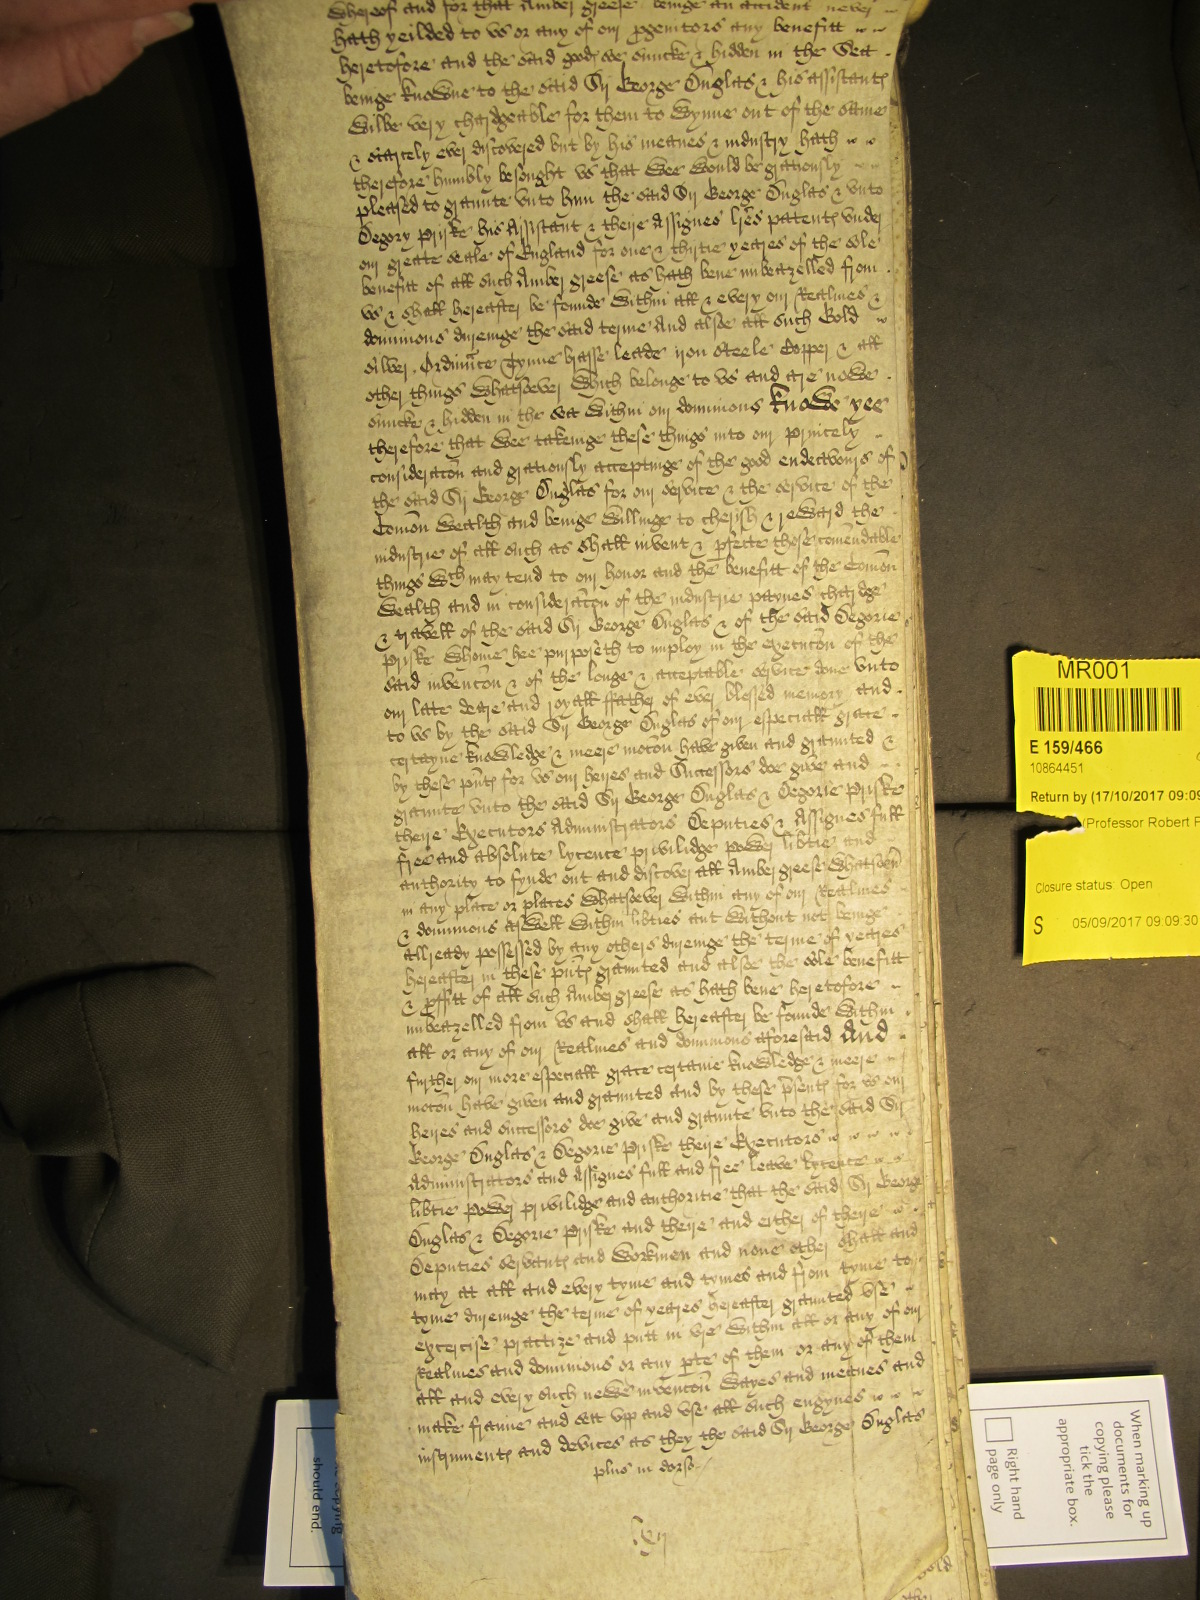 whereof and for that Amber greese beinge an accident never
hath yeilded to vs or any of our pgenitors any benefitt
heretofore and the said goods are suncke & hidden in the Sea
beinge knowne to the said Sr George Duglas & his assistants
wilbe very chardgeable for them to wynne out of the same
& scarcely ever discovered but by his meanes & industry hath
therefore humbly besought vs that wee would be gratiously
pleased to graunte vnto him the said Sr George Duglas & vnto
Degory Priske his Assistant & theire Assignes lres patents vnder
our greate seale of England for one & thirtie yeares of the sole
benefitt of all such Amber greese as hath bene imbeazelled from
vs & shall hereafter be founde within all & every our Realmes &
dominions dureinge the said terme And alsoe all such Gold
silver Ordinnce Tynne brasse leade iron steele Copper & all
other things whatsoever which belonge to vs and are nowe
suncke & hidden in the sea within our dominions knowe yee
therefore that wee takeinge these things into our princely
consideracon and gratiously acceptinge of the good endeavours of
the said Sr George Duglas for our service & the service of the
Comon wealth and beinge willinge to cherish & reward the
industrie of all such as shall invent & pfecte these comendable
things wch may tend to our honor and the benefitt of the Comon
wealth and in consideracon of the industrie paynes chardge
& travell of the said Sr George Duglas & of the said Degorie
Priske whome hee purposeth to imploy in the execucon of the
said invencon & of the longe & acceptable service done vnto
our late deare and royall ffather of ever blessed memory and
to vs by the said Sr George Duglas of our especiall grace
certayne knowledge & meere mocon have given and graunted &
by these pnts for vs our heires and Successors doe give and
graunte vnto the said Sr George Duglas & Degorie Priske
theire Executors Administrators Deputies & Assignes full
free and absolute lycence priviledge power libtie and
authority to fynde out and discover all Ambergreese whatsoever
in any place or places whatsoever within any of our Realmes
& dominions aswell within libties aut without not beinge
allready possessed by any others dureinge the terme of yeares
hereafter in these pnts graunted and alsoe the sole benefitt
& pffitt of all such Ambergreese as hath bene heretofore
imbeazelled from vs and shall hereafter be founde within
all or any of our Realmes and dominions aforesaid And
further our more especiall grace certaine knowledge & meere
mocon have given and graunted and by these psents for vs our
heires and successors doe give and graunte vnto the said Sr
George Duglas & Degorie Priske theire Executors
Administrators and Assignes full and free leave lycence
libtie power priviledge and authoritie that the said Sr George
Duglas & Degorie Priske and theire and either of theire
Deputies servants and workmen and none other shall and
may at all and every tyme and tymes and from tyme to
tyme dureinge the terme of yeares hereafter graunted vse
exercise practize and putt in vre within all or any of our
Realmes and dominions or any pte of them or any of them
all and every such newe invencon wayes and meanes and
make frame and sett vpp and vse all such engynes
instruments and devices as they the said Sr George Duglas
plus in dorso
MR001
E 159/466
10864451
Return by (17/10/2017 09:09
(Professor Robert F
Closure status: Open
S 05/09/2017 09:09:30
When marking up
documents for
copying please
tick the
appropriate box.
Right hand
page only
copying
should end.